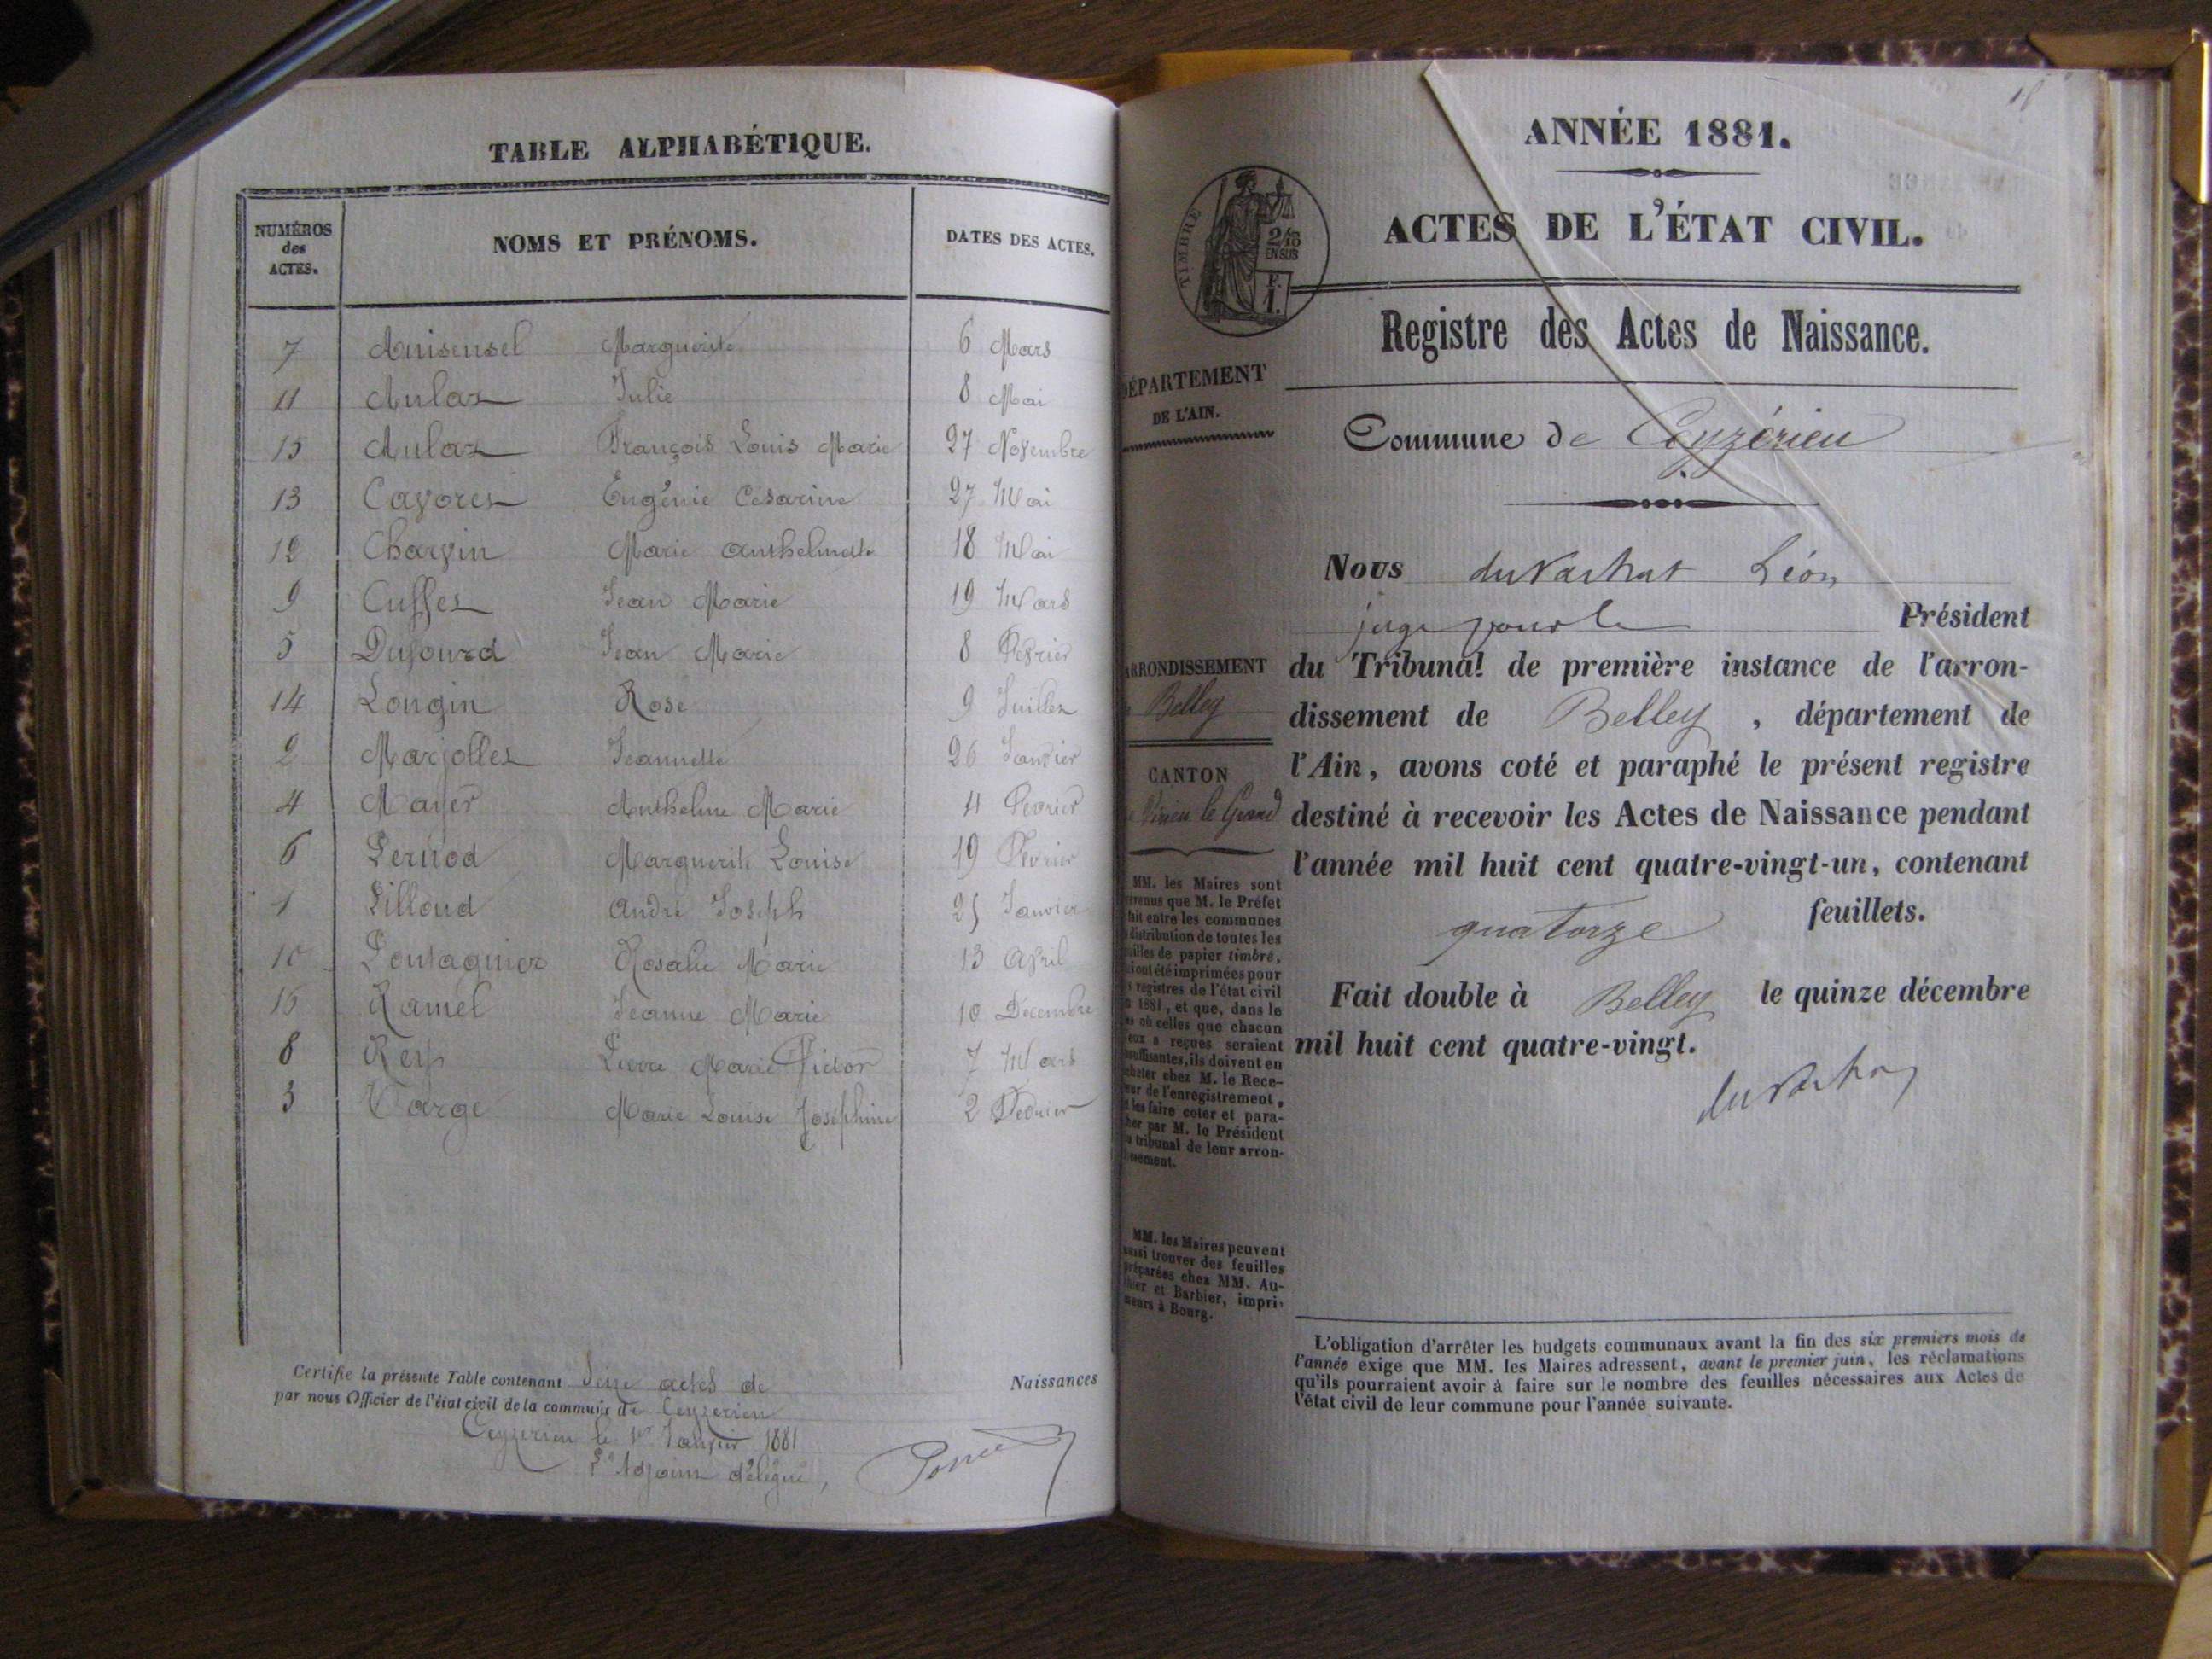 TABLE ALPHABÉTIQUE.
NUMÉROS des ACTES. NOMS ET PRÉNOMS. DATES DES ACTES.
7 Marguerite 6 Mars
11 Aulaz Julie 8 Mai
15 Aulaz François Louis Marie 27 Novembre
13 Eugénie Césarine 27 Mai
12 Charvin Marie Anthelmette 18 Mai
9 Jean Marie 19 Mars
5 Dufourd Jean Marie 8 Février
14 Longin Rose 9 Juillet
2 Marjollet Jeannette 26 Janvier
4 Mayer Anthelme Marie 11 Février
6 Pernod Marguerite Louise 19 Février
1 Pilloud André Joseph 25 Janvier
10 Rosalie Marie 13 Avril
16 Ramel Jeanne Marie 10 Décembre
8 Rey Pierre Marie Victor 7 Mars
3 Marie Louise Joséphine 2 Février
Certifie la présente Table contenant Seize actes de Naissances
par nous Officier de l'état civil de la commune de Ceyzérieu
Ceyzérieu le 1er Janvier 1881
L'Adjoint délégué,
ANNÉE 1881.
ACTES DE L'ÉTAT CIVIL.
TIMBRE
2/10
EN SUS
Registre des Actes de Naissance.
DÉPARTEMENT
DE L'AIN.
Commune de Ceyzérieu
Nous Léon
juge pour le Président
ARRONDISSEMENT
Belley
du Tribunal de première instance de l'arron-
dissement de Belley, département de
l'Ain, avons coté et paraphé le présent registre
destiné à recevoir les Actes de Naissance pendant
l'année mil huit cent quatre-vingt-un, contenant
quatorze feuillets.
Fait double à Belley le quinze décembre
mil huit cent quatre-vingt.
CANTON
Virieu le Grand
MM. les Maires sont
que M. le Préfet
fait entre les communes
distribution de toutes les
feuilles de papier timbré,
ont été imprimées pour
registres de l'état civil
1881, et que, dans le
où celles que chacun
a reçues seraient
insuffisantes, ils doivent en
acheter chez M. le Rece-
veur de l'enregistrement,
les faire coter et para-
pher par M. le Président
tribunal de leur arron-
dissement.
MM. les Maires peuvent
aussi trouver des feuilles
préparées chez MM. Au-
et Barbier, impri-
meurs à Bourg.
L'obligation d'arrêter les budgets communaux avant la fin des six premiers mois de
l'année exige que MM. les Maires adressent, avant le premier juin, les réclamations
qu'ils pourraient avoir à faire sur le nombre des feuilles nécessaires aux Actes de
l'état civil de leur commune pour l'année suivante.